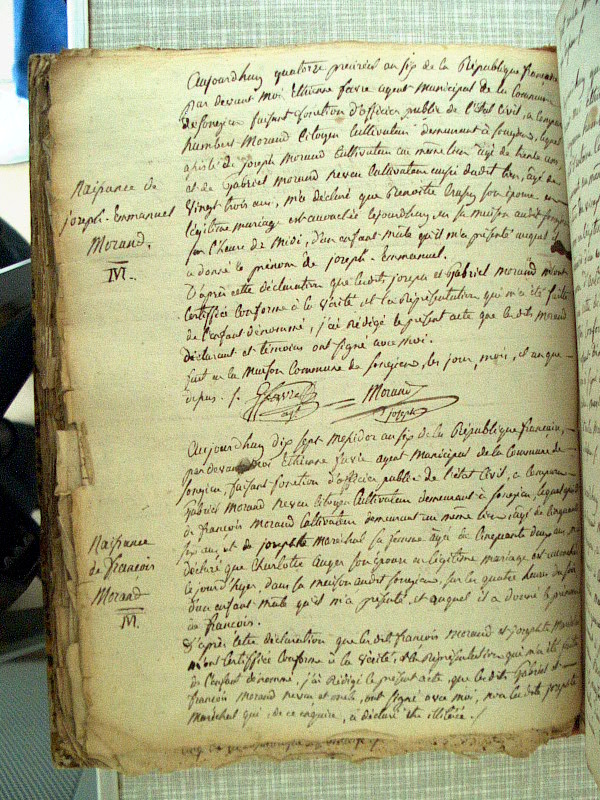 Aujourdhuy quatorze prairial an six de la République francaise
par devant moi Etienne favre agent Municipal de la Commune
de songieu faisant fonction d'officier public de l'Etat Civil, a comparu
humbert Morand Citoyen Cultivateur demeurant à songieu, lequel
assisté de Joseph Morand Cultivateur au même lieu agé de trente ans
et de Gabriel Morand neveu Cultivateur aussi dudit lieu, agé de
Vingt trois ans, m'a déclaré que Benoite son épouse en
légitime mariage est accouchée cejourdhuy, en sa maison audit songieu
sur l'heure de Midi, d'un enfant mâle qu'il m'a présenté auquel il
a donné le prénom de joseph-Emmanuel.
D'après cette déclaration que lesdits joseph et Gabriel morand m'ont
Certifiée Conforme à la Vérité et la Représentation qui m'a été faite
de l'enfant dénommé, j'ai rédigé le présent acte que lesdits Morand
déclarant et témoins ont signé avec moi.
fait en la Maison Commune de songieu, les jour, mois, et an que
dessus.
Naissance de
joseph-Emmanuel
Morand.
M.
favre
agt
Morand
joseph
Aujourdhuy dix sept Messidor an six de la République francaise,
par devant Moi Ethienne favre agent Municipal de la Commune de
songieu, faisant fonction d'officier public de l'état Civil, a Comparu
Gabriel Morand neveu Citoyen Cultivateur demeurant à songieu, lequel assisté
de francois Morand Cultivateur demeurant au même lieu, agé de Cinquante
six ans, et de josephte Maréchal sa femme agée de Cinquante deux ans, m'a
déclaré que Charlotte Auger son épouse en légitime mariage est accouchée
le jourd'hyer, dans sa maison audit songieu, sur les quatre heures du soir
d'un enfant mâle qu'il m'a présenté, et auquel il a donné le prénom
de francois.
D'après cette déclaration que lesdits francois Morand et josephte Maréchal
m'ont Certifiée Conforme à la Vérité, et la Représentation qui m'a été faite
de l'enfant dénommé, j'ai rédigé le présent acte, que lesdits Gabriel et
francois Morand neveu et oncle, ont signé avec moi, non ladite josephte
Maréchal qui, de ce enquise, a déclaré être illitérée.
Naissance
de francois
Morand
M.